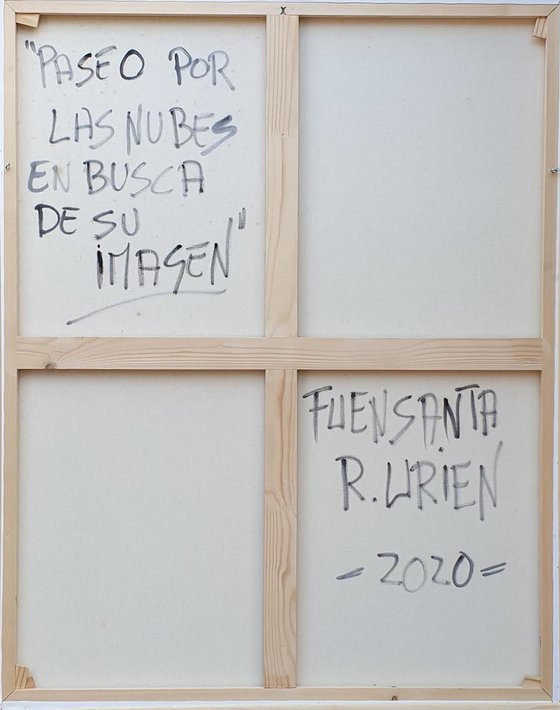 "PASEO POR
LAS NUBES
EN BUSCA
DE SU
iMAGEN"
FUENSANTA
R. URiEN
- 2020 =